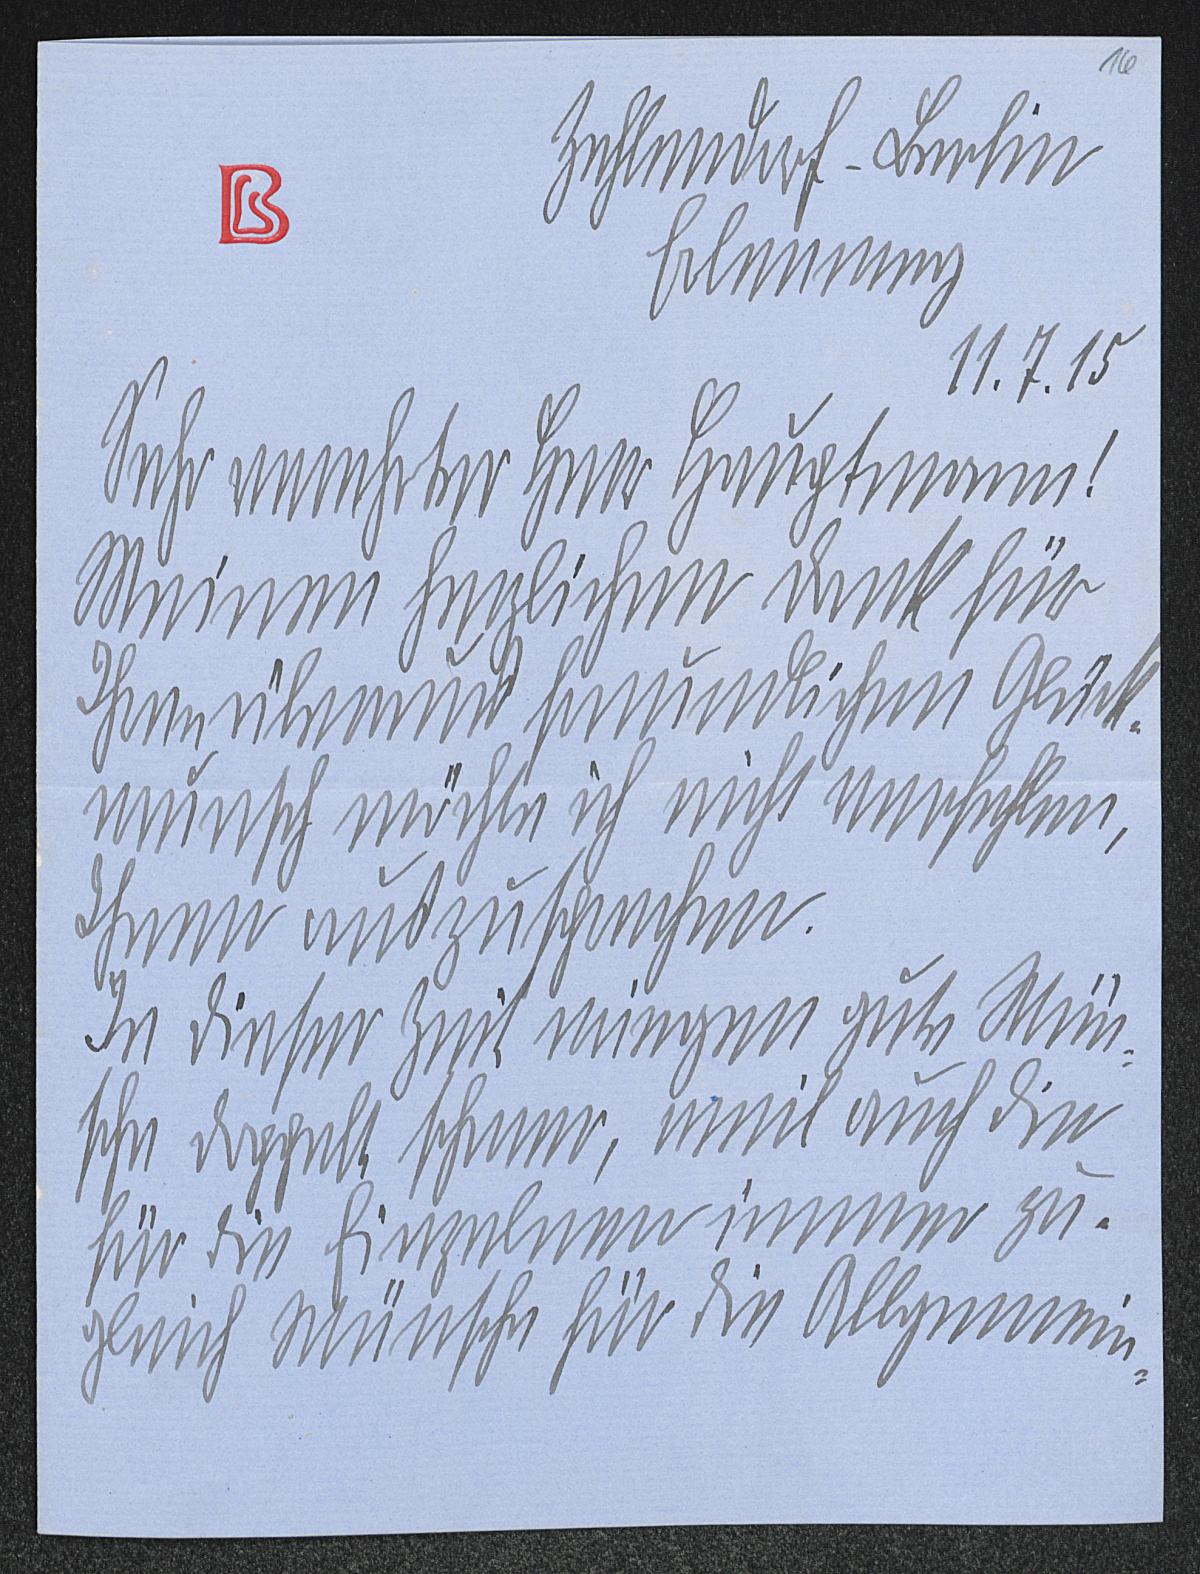 16
Zehlendorf-Berlin
Erlenweg
11.7.15
Sehr verehrter Herr Hauptmann!
Meinen herzlichen Dank für
Ihren überaus freundlichen Glück-
wunsch möchte ich nicht verfehlen,
Ihnen auszusprechen.
In dieser Zeit wiegen gute Wün-
sche doppelt schwer, weil auch die
für die Einzelnen immer zu-
gleich Wünsche für die Allgemein-